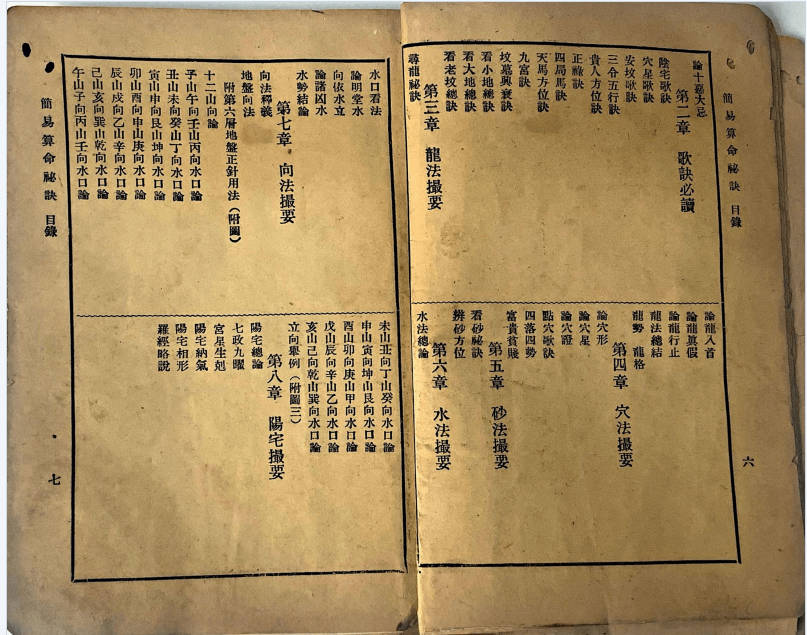 簡易算命祕訣 目錄
六
論十嘉大忌
第二章 歌訣必讀
陰宅歌訣
穴星歌訣
安坟歌訣
三合五行訣
貴人方位訣
正祿訣
四局馬訣
天馬方位訣
九宮訣
坟墓興衰訣
看小地總訣
看大地總訣
看老坟總訣
第三章 龍法撮要
尋龍祕訣
論龍入首
論龍真假
論龍行止
龍法總結
龍勢 龍格
第四章 穴法撮要
論穴形
論穴星
論穴證
點穴歌訣
四落四勢
富貴貧賤
第五章 砂法撮要
看砂祕訣
辨砂方位
第六章 水法撮要
水法總論
水口看法
論明堂水
向依水立
論諸凶水
水勢結論
第七章 向法撮要
向法釋義
地盤向法
附第六層地盤正針用法(附圖)
十二山向論
子山午向壬山丙向水口論
丑山未向癸山丁向水口論
寅山申向艮山坤向水口論
卯山酉向甲山庚向水口論
辰山戌向乙山辛向水口論
己山亥向巽山乾向水口論
午山子向丙山壬向水口論
未山丑向丁山癸向水口論
申山寅向坤山艮向水口論
酉山卯向庚山甲向水口論
戌山辰向辛山乙向水口論
亥山己向乾山巽向水口論
立向舉例(附圖三)
第八章 陽宅撮要
陽宅總論
七政九曜
宮星生剋
陽宅納氣
陽宅相形
羅經略說
簡易算命祕訣 目錄
七